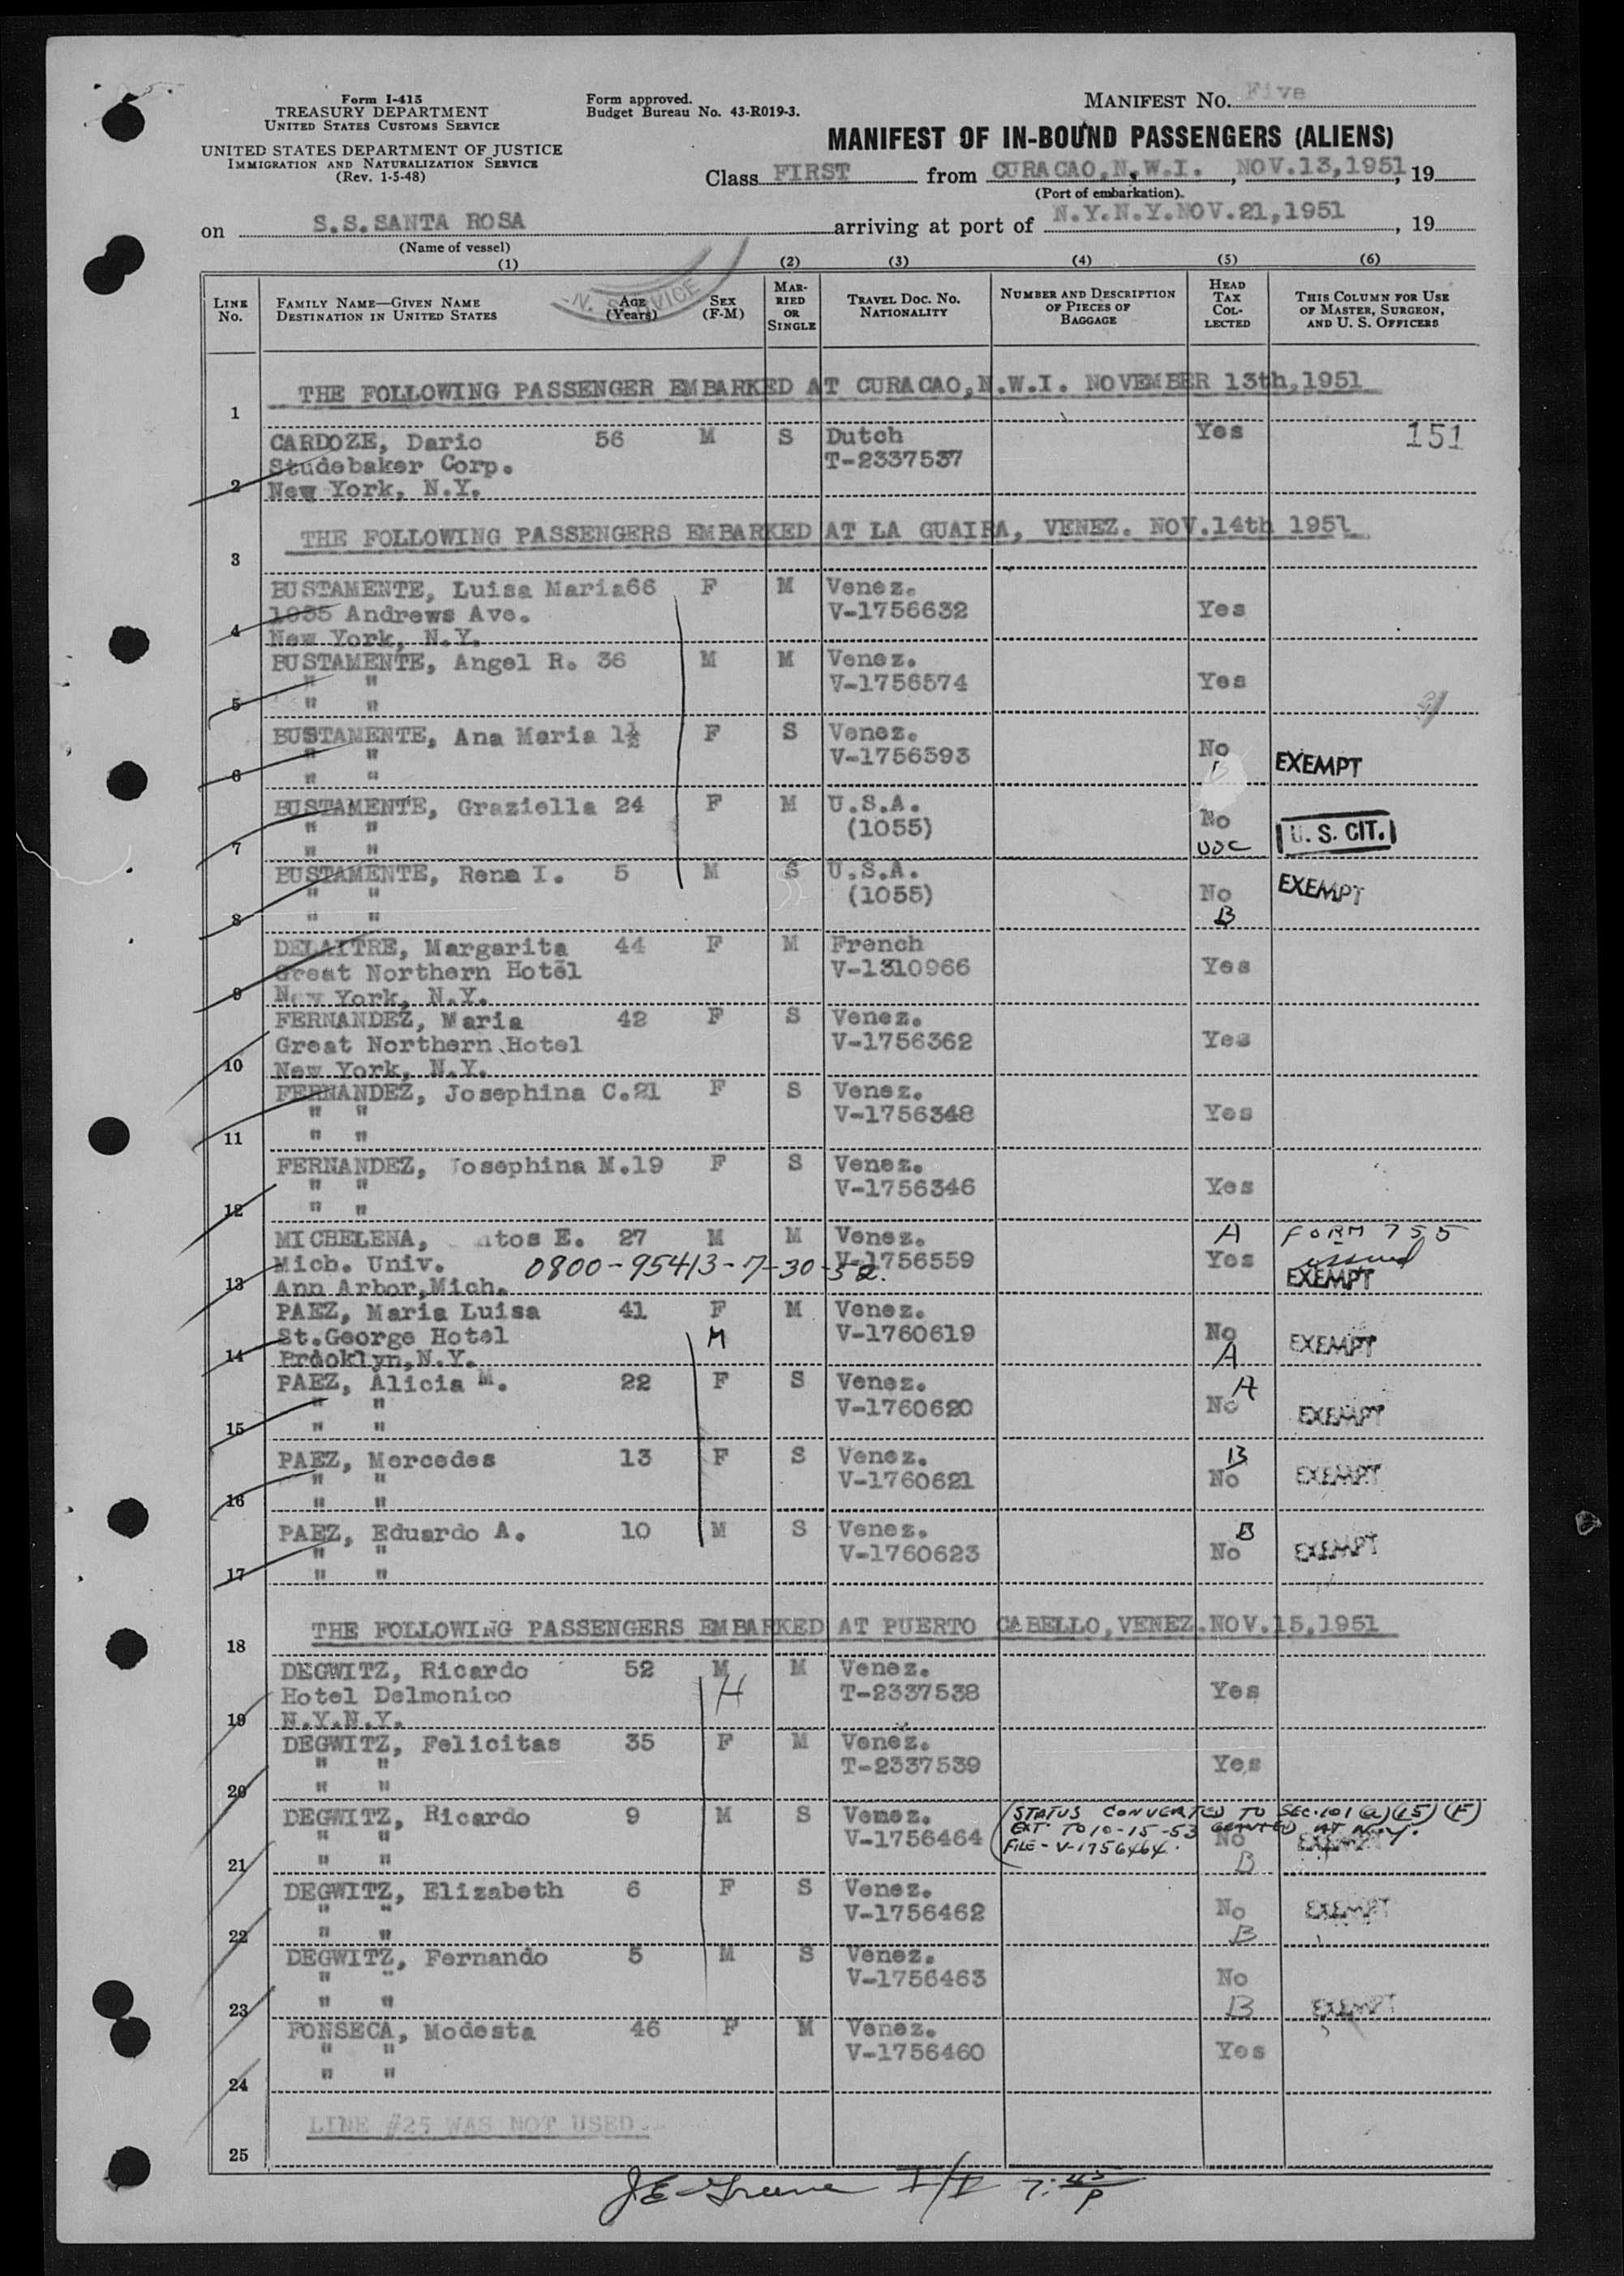 Form I-415
TREASURY DEPARTMENT
UNITED STATES CUSTOMS SERVICE
UNITED STATES DEPARTMENT OF JUSTICE
IMMIGRATION AND NATURALIZATION SERVICE
(Rev. 1-5-48)
Form approved.
Budget Bureau No. 43-R019-3.
MANIFEST NO. Five
MANIFEST OF IN-BOUND PASSENGERS (ALIENS)
Class FIRST from CURACAO, N.W.I. , NOV.13,1951, 19
(Port of embarkation)
on S.S.SANTA ROSA arriving at port of N.Y.N.Y.NOV.21,1951 , 19
(Name of vessel)
(1) (2) (3) (4) (5) (6)
LINE No. FAMILY NAME—GIVEN NAME DESTINATION IN UNITED STATES AGE (Years) SEX (F-M) MARRIED OR SINGLE TRAVEL DOC. NO. NATIONALITY NUMBER AND DESCRIPTION OF PIECES OF BAGGAGE HEAD TAX COLLECTED THIS COLUMN FOR USE OF MASTER, SURGEON, AND U. S. OFFICERS
N. SERVICE
1 THE FOLLOWING PASSENGER EMBARKED AT CURACAO,N.W.I. NOVEMBER 13th,1951
CARDOZE, Dario 56 M S Dutch Yes 151
Studebaker Corp. T-2337537
2 New York, N.Y.
3 THE FOLLOWING PASSENGERS EMBARKED AT LA GUAIRA, VENEZ. NOV.14th 1951
BUSTAMENTE, Luisa Maria66 F M Venez.
1035 Andrews Ave. V-1756632 Yes
4 New York, N.Y.
BUSTAMENTE, Angel R. 36 M M Venez.
" " V-1756574 Yes
5 " "
BUSTAMENTE, Ana Maria 1½ F S Venez.
" " V-1756593 No EXEMPT
6 " "
BUSTAMENTE, Graziella 24 F M U.S.A.
" " (1055) No U. S. CIT.
7 " " USC
BUSTAMENTE, Rene I. 5 M S U.S.A.
" " (1055) No EXEMPT
8 " " B
DELAITRE, Margarita 44 F M French
Great Northern Hotel V-1310966 Yes
9 New York, N.Y.
FERNANDEZ, Maria 42 F S Venez.
Great Northern Hotel V-1756362 Yes
10 New York, N.Y.
FERNANDEZ, Josephina C.21 F S Venez.
" " V-1756348 Yes
11 " "
FERNANDEZ, Josephina M.19 F S Venez.
" " V-1756346 Yes
12 " "
MICHELENA, E. 27 M M Venez. A FORM 755
Mich. Univ. 0800-95413-7-30-52. V-1756559 Yes issued
13 Ann Arbor,Mich. EXEMPT
PAEZ, Maria Luisa 41 F M Venez.
St.George Hotel H V-1760619 No EXEMPT
14 Brooklyn,N.Y. A
PAEZ, Alicia M. 22 F S Venez. A
" " V-1760620 No EXEMPT
15 " "
PAEZ, Mercedes 13 F S Venez. B
" " V-1760621 No EXEMPT
16 " "
PAEZ, Eduardo A. 10 M S Venez. B
" " V-1760623 No EXEMPT
17 " "
18 THE FOLLOWING PASSENGERS EMBARKED AT PUERTO CABELLO,VENEZ.NOV.15,1951
DEGWITZ, Ricardo 52 M M Venez.
Hotel Delmonico H T-2337538 Yes
19 N.Y.N.Y.
DEGWITZ, Felicitas 35 F M Venez.
" " T-2337539 Yes
20 " "
DEGWITZ, Ricardo 9 M S Venez. STATUS CONVERTED TO SEC.101(a)(15)(F)
" " V-1756464 EXT. TO 10-15-53 GRANTED AT N.Y. No EXEMPT
21 " " FILE - V-1756464. B
DEGWITZ, Elizabeth 6 F S Venez.
" " V-1756462 No EXEMPT
22 " " B
DEGWITZ, Fernando 5 M S Venez.
" " V-1756463 No
23 " " B EXEMPT
FONSECA, Modesta 46 F M Venez.
" " V-1756460 Yes
24 " "
LINE #25 WAS NOT USED.
25
JE Greene I/I 7:45 P